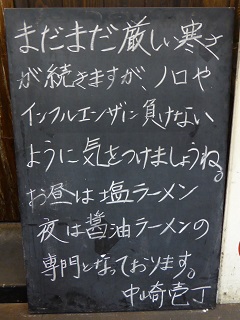 まだまだ厳しい寒さ
が続きますが、ノロや
インフルエンザに負けない
ように気をつけましょうね。
お昼は塩ラーメン
夜は醤油ラーメンの
専門となっております。
中崎壱丁